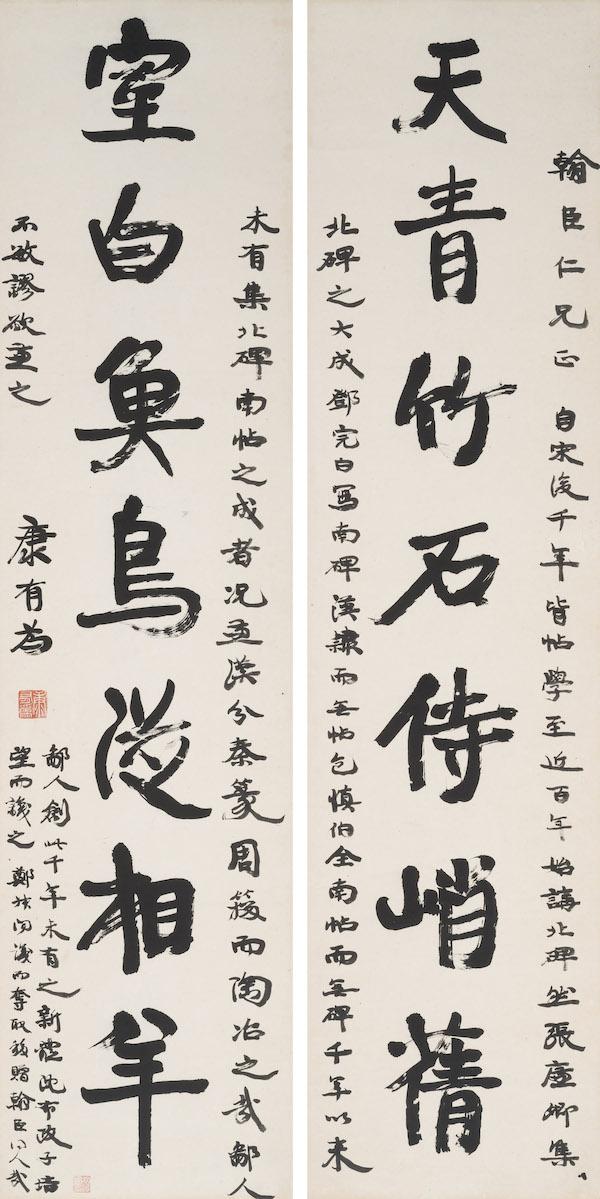 翰臣仁兄正 自宋後千年皆帖學至近百年始講北碑然張廉卿集
天青竹石侍峭蒨
北碑之大成鄧完白寫南碑漢隸而無帖包慎伯全南帖而無碑千年以來
未有集北碑南帖之成者况兼漢分秦篆周籀而陶冶之哉鄙人
室白魚鳥從相羊
不敏謬欲兼之 康有為
鄙人創此千年未有之新體沈布政子培
望而識之鄭叔問識而奪取贈翰臣同人哉